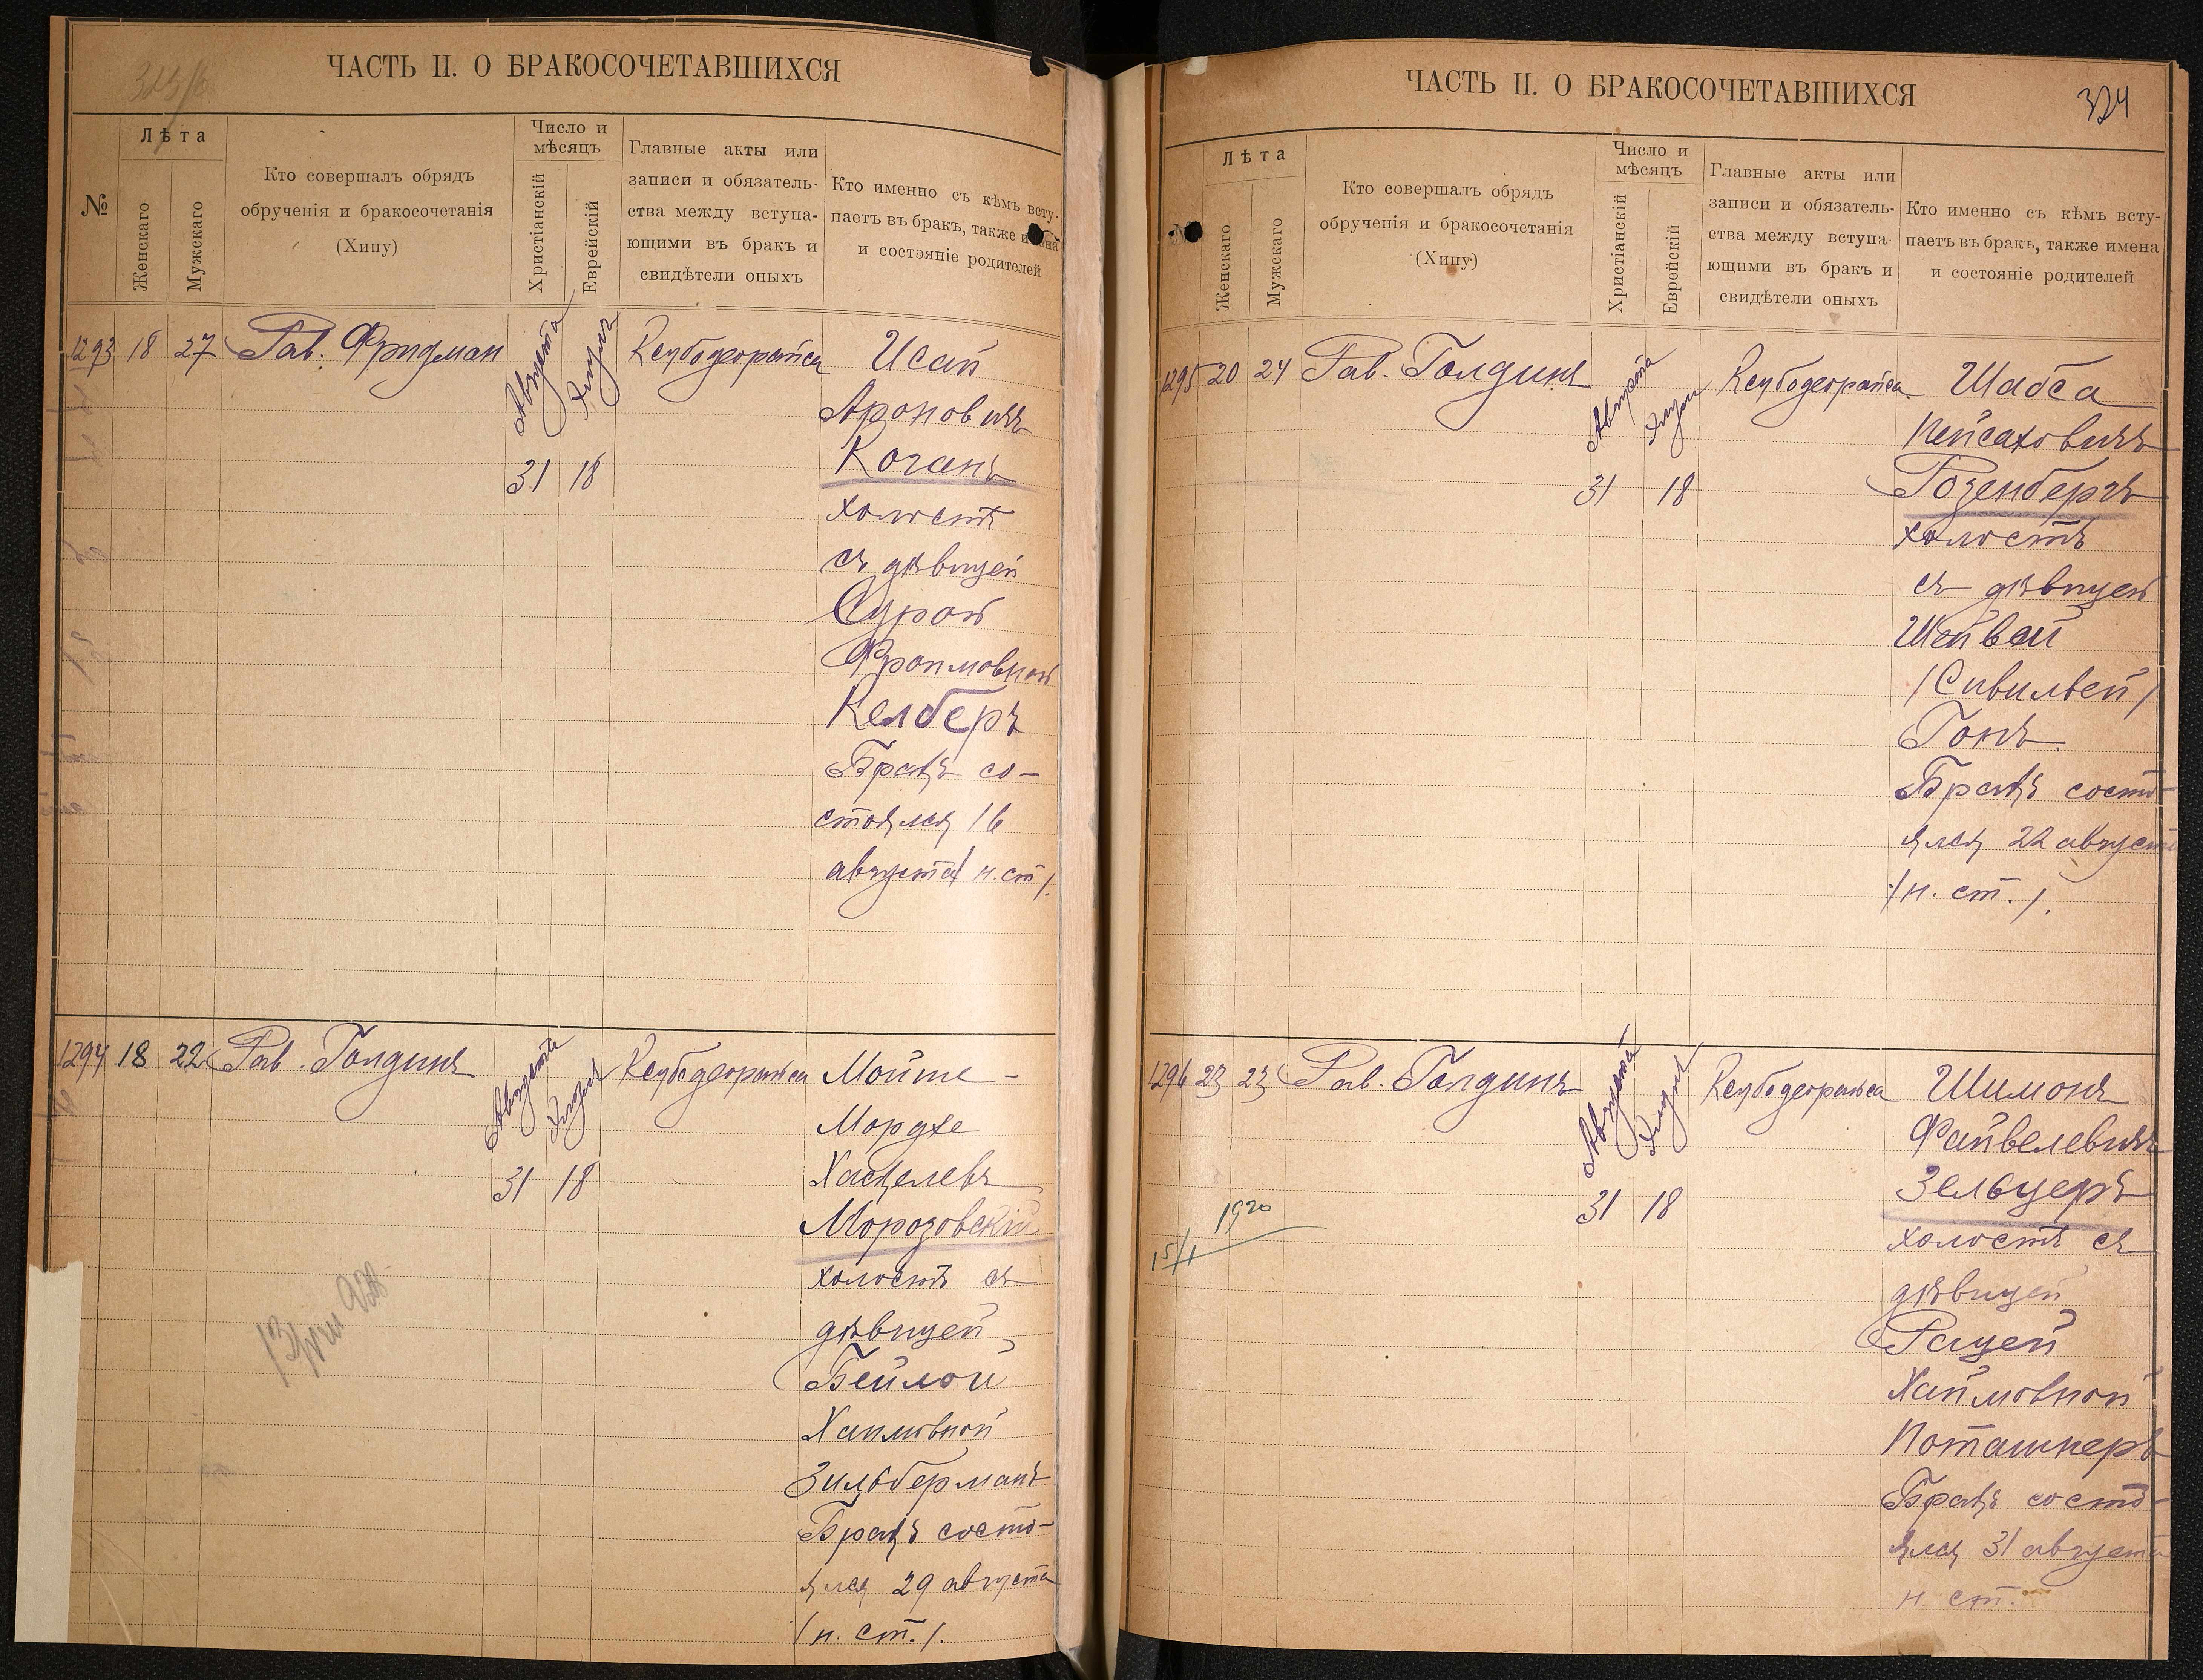 ЧАСТЬ II. О БРАКОСОЧЕТАВШИХСЯ
№
Лѣта
Женскаго
Мужскаго
Кто совершалъ обрядъ
обрученія и бракосочетанія
(Хипу)
Число и
мѣсяцъ
Христіанскій
Еврейскій
Главные акты или
записи и обязатель-
ства между вступа-
ющими въ бракъ и
свидѣтели оныхъ
Кто именно съ кѣмъ всту-
паетъ въ бракъ, также имена
и состояніе родителей
1293 18 27 Рав. Фридман
Августа
Элула
31 18
Ксубодеорайса
Исай
Ароновичъ
Коганъ
холостъ
съ дѣвицей
Сурой
Фроимовной
Келберъ
Бракъ со-
стоялся 16
августа (н. ст.).
1294 18 22 Рав. Голдинъ
Августа
Элула
31 18
Ксубодеорайса
Мойше-
Мордхе
Хаскелевъ
Морозовскій
холостъ съ
дѣвицей
Бейлой
Хаимовной
Зильберманъ
Бракъ состо-
ялся 29 августа
(н. ст.).
ЧАСТЬ II. О БРАКОСОЧЕТАВШИХСЯ
324
Лѣта
Женскаго
Мужскаго
Кто совершалъ обрядъ
обрученія и бракосочетанія
(Хипу)
Число и
мѣсяцъ
Христіанскій
Еврейскій
Главные акты или
записи и обязатель-
ства между вступа-
ющими въ бракъ и
свидѣтели оныхъ
Кто именно съ кѣмъ всту-
паетъ въ бракъ, также имена
и состояніе родителей
1295 20 24 Рав. Голдинъ
Августа
Элула
31 18
Ксубодеорайса
Шабса
Пейсаховичъ
Розенбергъ
холостъ
съ дѣвицей
Шейвей
(Сивильей)
Гонъ.
Бракъ состо-
ялся 22 августа
(н. ст.).
1296 23 23 Рав. Голдинъ
Августа
Элула
31 18
Ксубодеорайса
15/I 1920
Шимонъ
Файвелевичъ
Зельцеръ
холостъ съ
дѣвицей
Рацей
Хаймовной
Поташнеръ
Бракъ состо-
ялся 31 августа
н. ст.